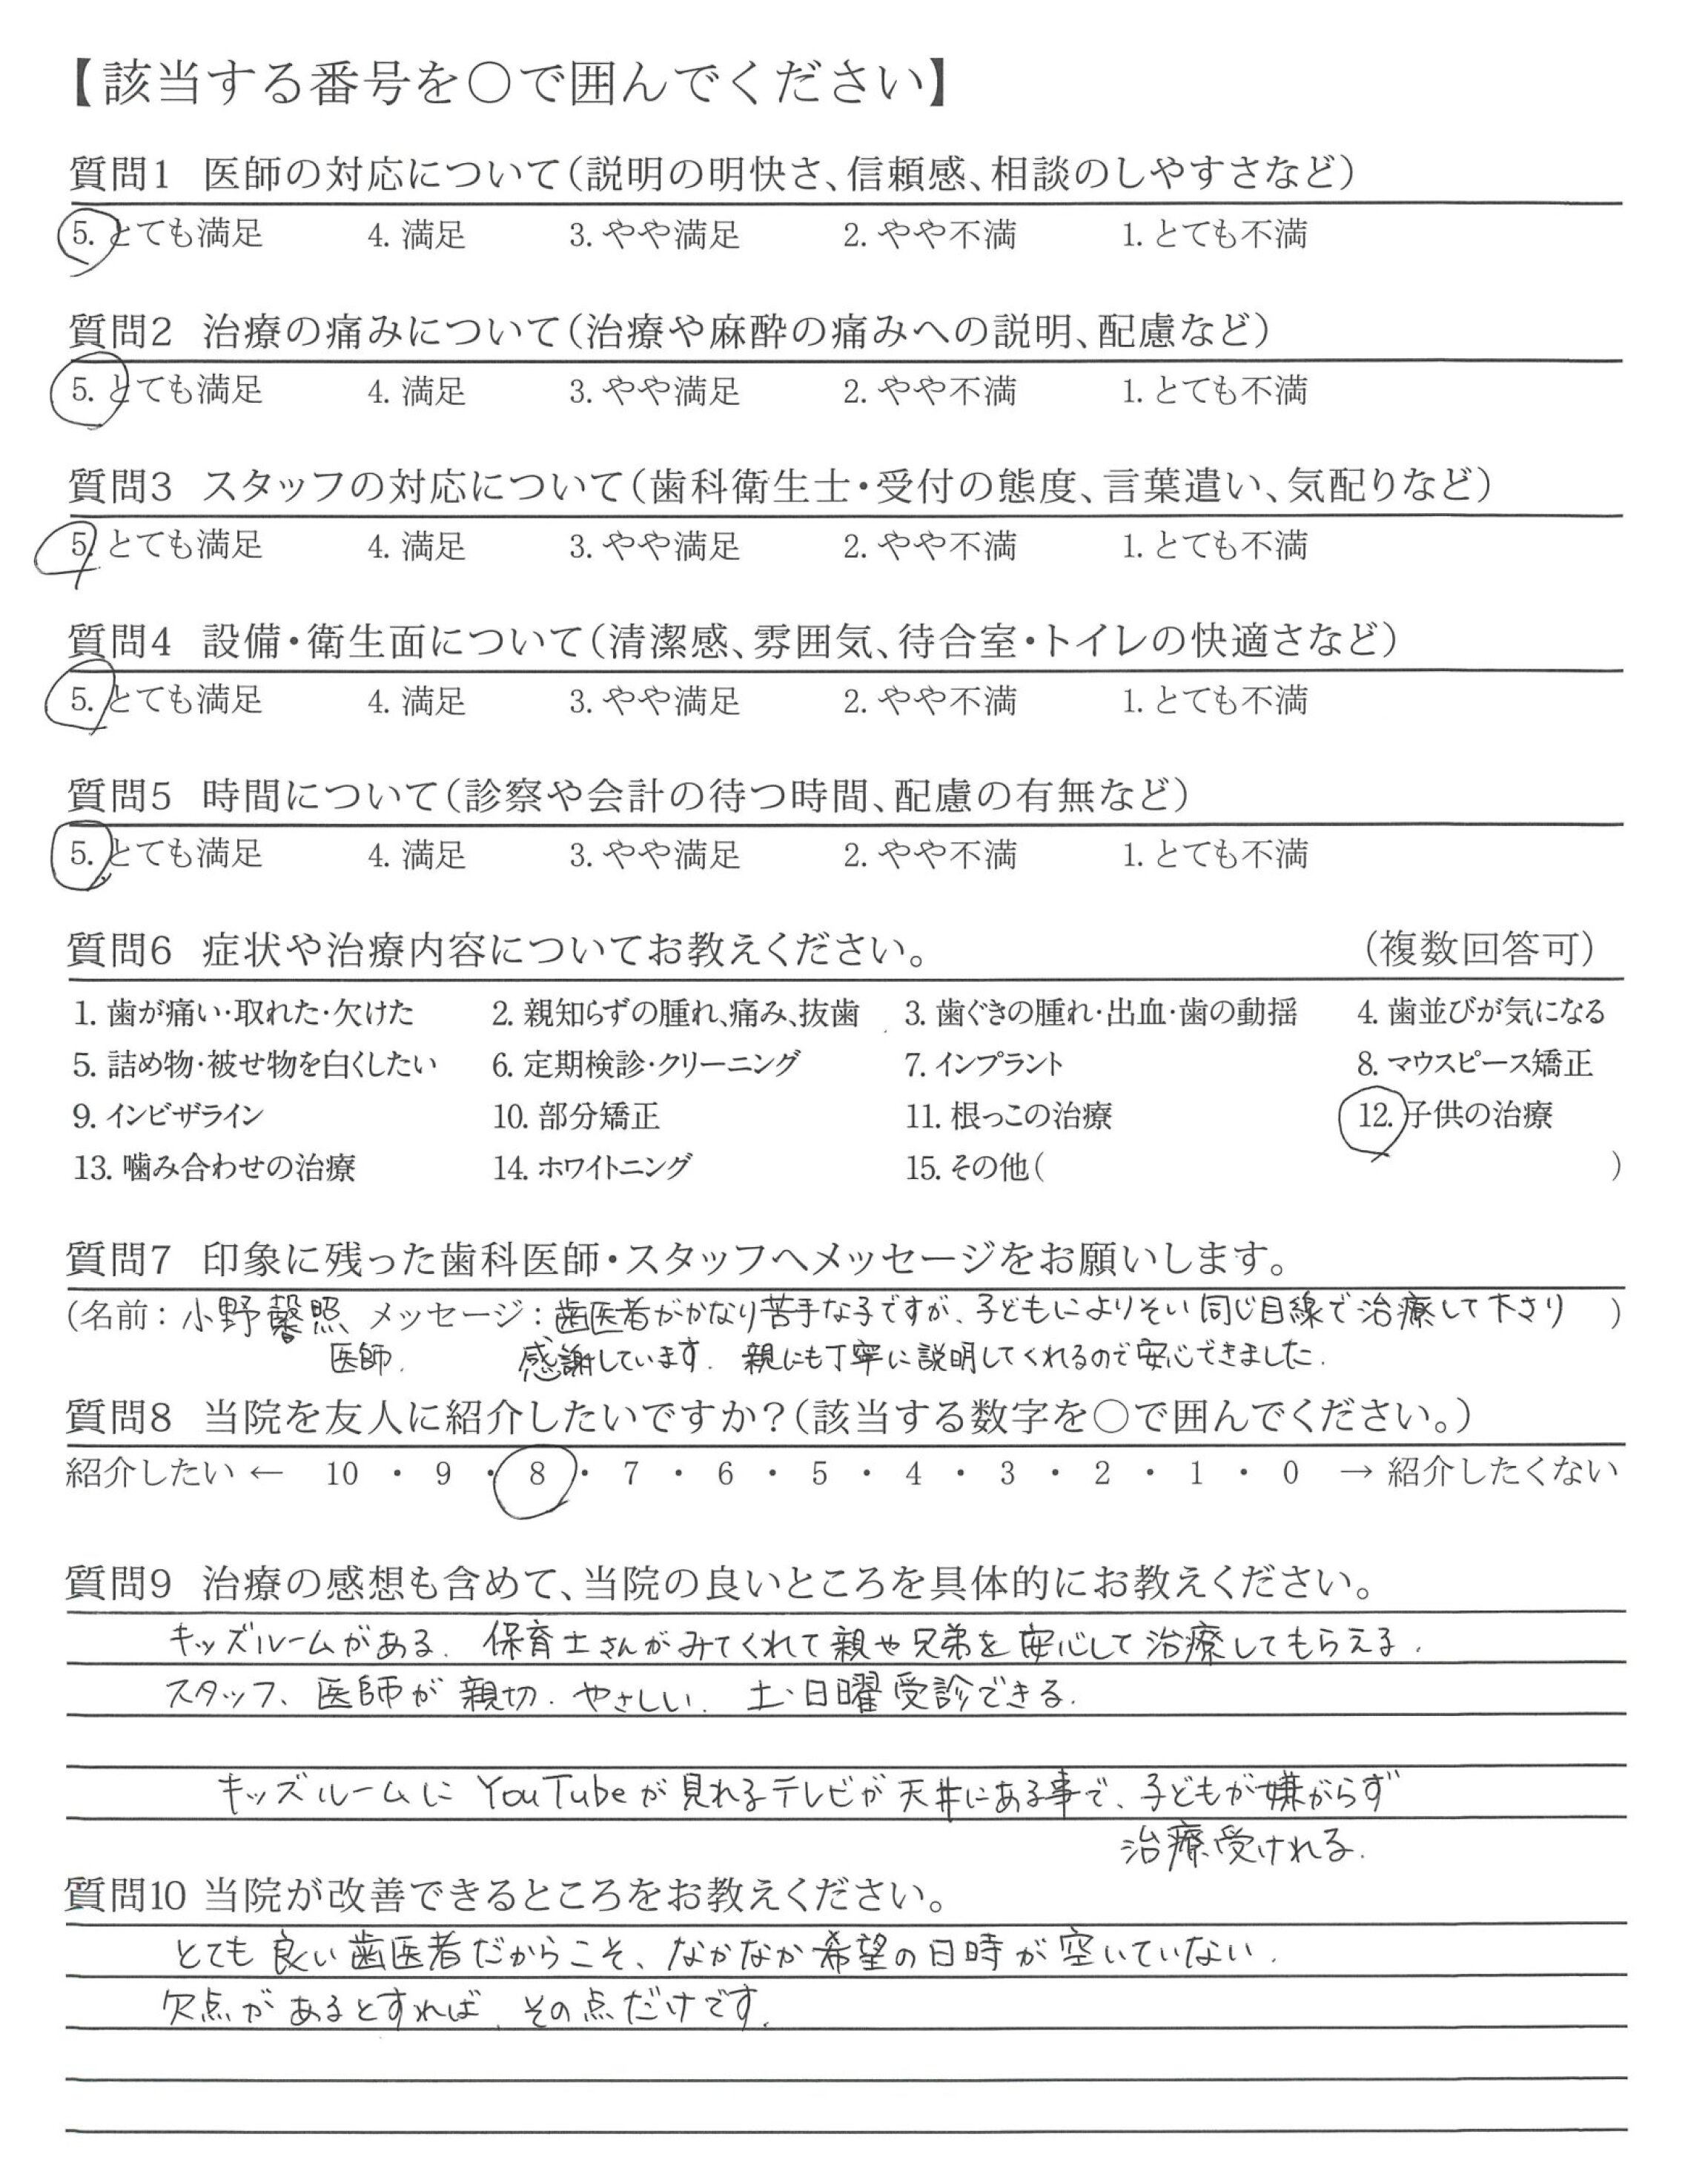 【該当する番号を○で囲んでください】
質問1 医師の対応について(説明の明快さ、信頼感、相談のしやすさなど)
5. とても満足 4. 満足 3. やや満足 2. やや不満 1. とても不満
質問2 治療の痛みについて(治療や麻酔の痛みへの説明、配慮など)
5. とても満足 4. 満足 3. やや満足 2. やや不満 1. とても不満
質問3 スタッフの対応について(歯科衛生士・受付の態度、言葉遣い、気配りなど)
5. とても満足 4. 満足 3. やや満足 2. やや不満 1. とても不満
質問4 設備・衛生面について(清潔感、雰囲気、待合室・トイレの快適さなど)
5. とても満足 4. 満足 3. やや満足 2. やや不満 1. とても不満
質問5 時間について(診察や会計の待つ時間、配慮の有無など)
5. とても満足 4. 満足 3. やや満足 2. やや不満 1. とても不満
質問6 症状や治療内容についてお教えください。 (複数回答可)
1. 歯が痛い・取れた・欠けた 2. 親知らずの腫れ、痛み、抜歯 3. 歯ぐきの腫れ・出血・歯の動揺 4. 歯並びが気になる
5. 詰め物・被せ物を白くしたい 6. 定期検診・クリーニング 7. インプラント 8. マウスピース矯正
9. インビザライン 10. 部分矯正 11. 根っこの治療 12. 子供の治療
13. 噛み合わせの治療 14. ホワイトニング 15. その他( )
質問7 印象に残った歯科医師・スタッフへメッセージをお願いします。
(名前：小野馨照、メッセージ：歯医者がかなり苦手な子ですが、子どもによりそい同じ目線で治療して下さり )
医師. 感謝しています. 親にも丁寧に説明してくれるので安心できました.
質問8 当院を友人に紹介したいですか?(該当する数字を○で囲んでください。)
紹介したい ← 10 ・ 9 ・ 8 ・ 7 ・ 6 ・ 5 ・ 4 ・ 3 ・ 2 ・ 1 ・ 0 → 紹介したくない
質問9 治療の感想も含めて、当院の良いところを具体的にお教えください。
キッズルームがある. 保育士さんがみてくれて親や兄弟を安心して治療してもらえる.
スタッフ、医師が親切. やさしい. 土・日曜受診できる.
キッズルームにYouTubeが見れるテレビが天井にある事で、子どもが嫌がらず
治療受けれる.
質問10 当院が改善できるところをお教えください。
とても良い歯医者だからこそ、なかなか希望の日時が空いていない.
欠点があるとすれば、その点だけです.